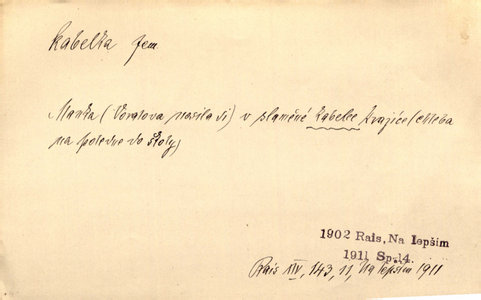 kabelka fem
Manka (Voratova nosila si) v slaměné kabelce krajíce (chleba
na poledne do školy)
1902 Rais, Na lepším
1911 Sp. 14.
Rais XIV, 143, 11, Na lepším 1911